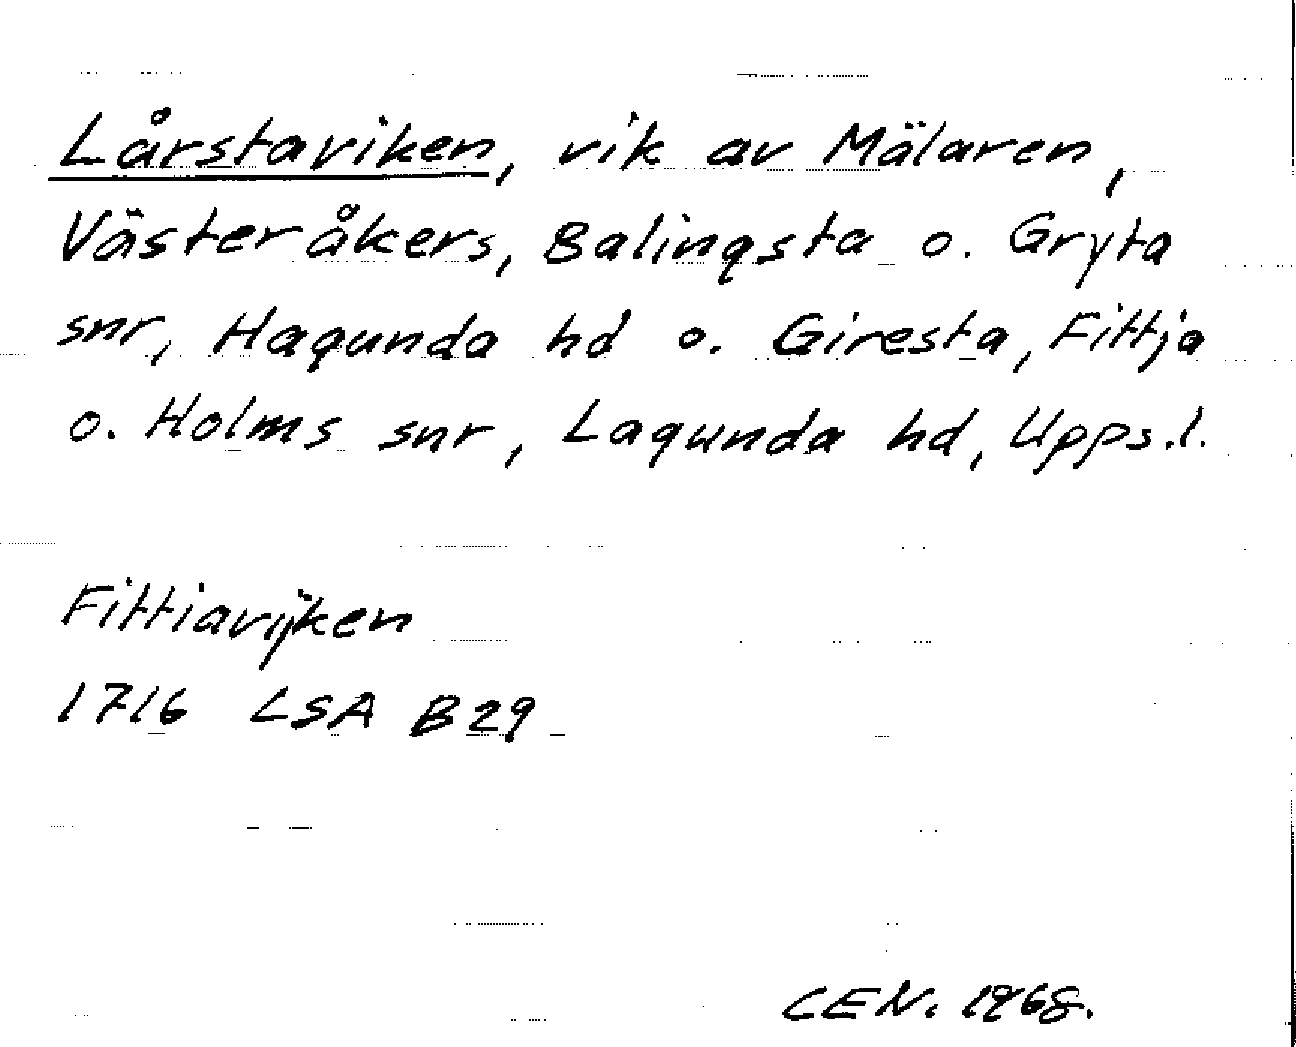 Lårstaviken, vik av Mälaren,
Västeråkers, Balingsta o. Gryta
snr, Hagunda hd o. Giresta, Fittja
o. Holms snr, Lagunda hd, Upps.l.
Fittiavijken
1716 LSA B29
CEN. 1968.